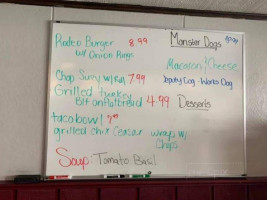 Rodeo Burger 8.99
w/ Onion Rings
Chop Suey w/ Roll 7.99
Grilled turkey
BLT on flatbread 4.99
taco bowl 7.99
grilled chix Ceasar wraps w/
Chips
Soup: Tomato Basil
Monster Dogs
Macaroni & Cheese
Deputy Dog - Works Dog
Desserts